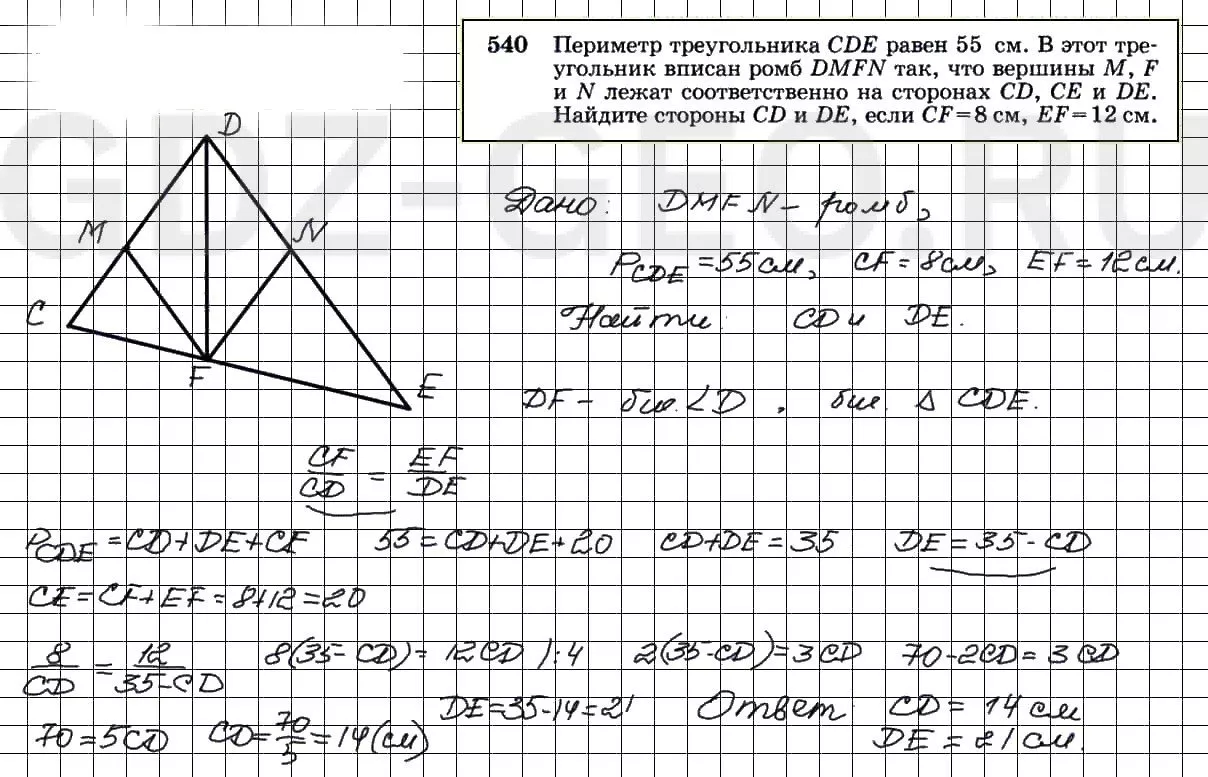 540 Периметр треугольника CDE равен 55 см. В этот тре-
угольник вписан ромб DMFN так, что вершины M, F
и N лежат соответственно на сторонах CD, CE и DE.
Найдите стороны CD и DE, если CF=8 см, EF=12 см.
GDZ-GEO.RU
D
M
N
C
F
E
Дано: DMFN – ромб,
P_CDE = 55 см, CF = 8 см, EF = 12 см.
Найти: CD и DE.
DF – бис. ∠D, бис. Δ CDE.
CF/CD = EF/DE
P_CDE = CD+DE+CE 55 = CD+DE+20 CD+DE = 35 DE = 35 - CD
CE = CF + EF = 8+12 = 20
8/CD = 12/35-CD 8(35-CD) = 12CD |:4 2(35-CD) = 3CD 70-2CD = 3CD
70 = 5CD CD = 70/5 = 14(см) DE = 35-14 = 21 Ответ CD = 14 см
DE = 21 см.